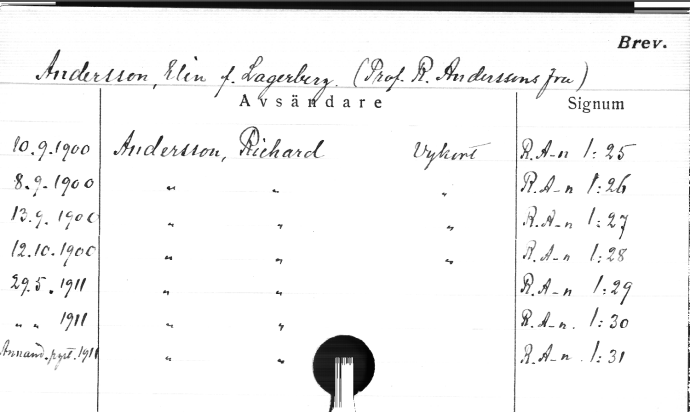 Brev.
Andersson, Elin f. Lagerberg. (Prof. R. Anderssons fru)
Avsändare Signum
10.9.1900 Andersson, Richard Vykort R. A-n 1:25
8.9.1900 " " " R. A-n 1:26
13.9.1900 " " " R. A-n 1:27
12.10.1900 " " " R. A-n 1:28
29.5.1911 " " R. A-n 1:29
" " 1911 " " R. A-n. 1:30
1911 " " R. A-n. 1:31